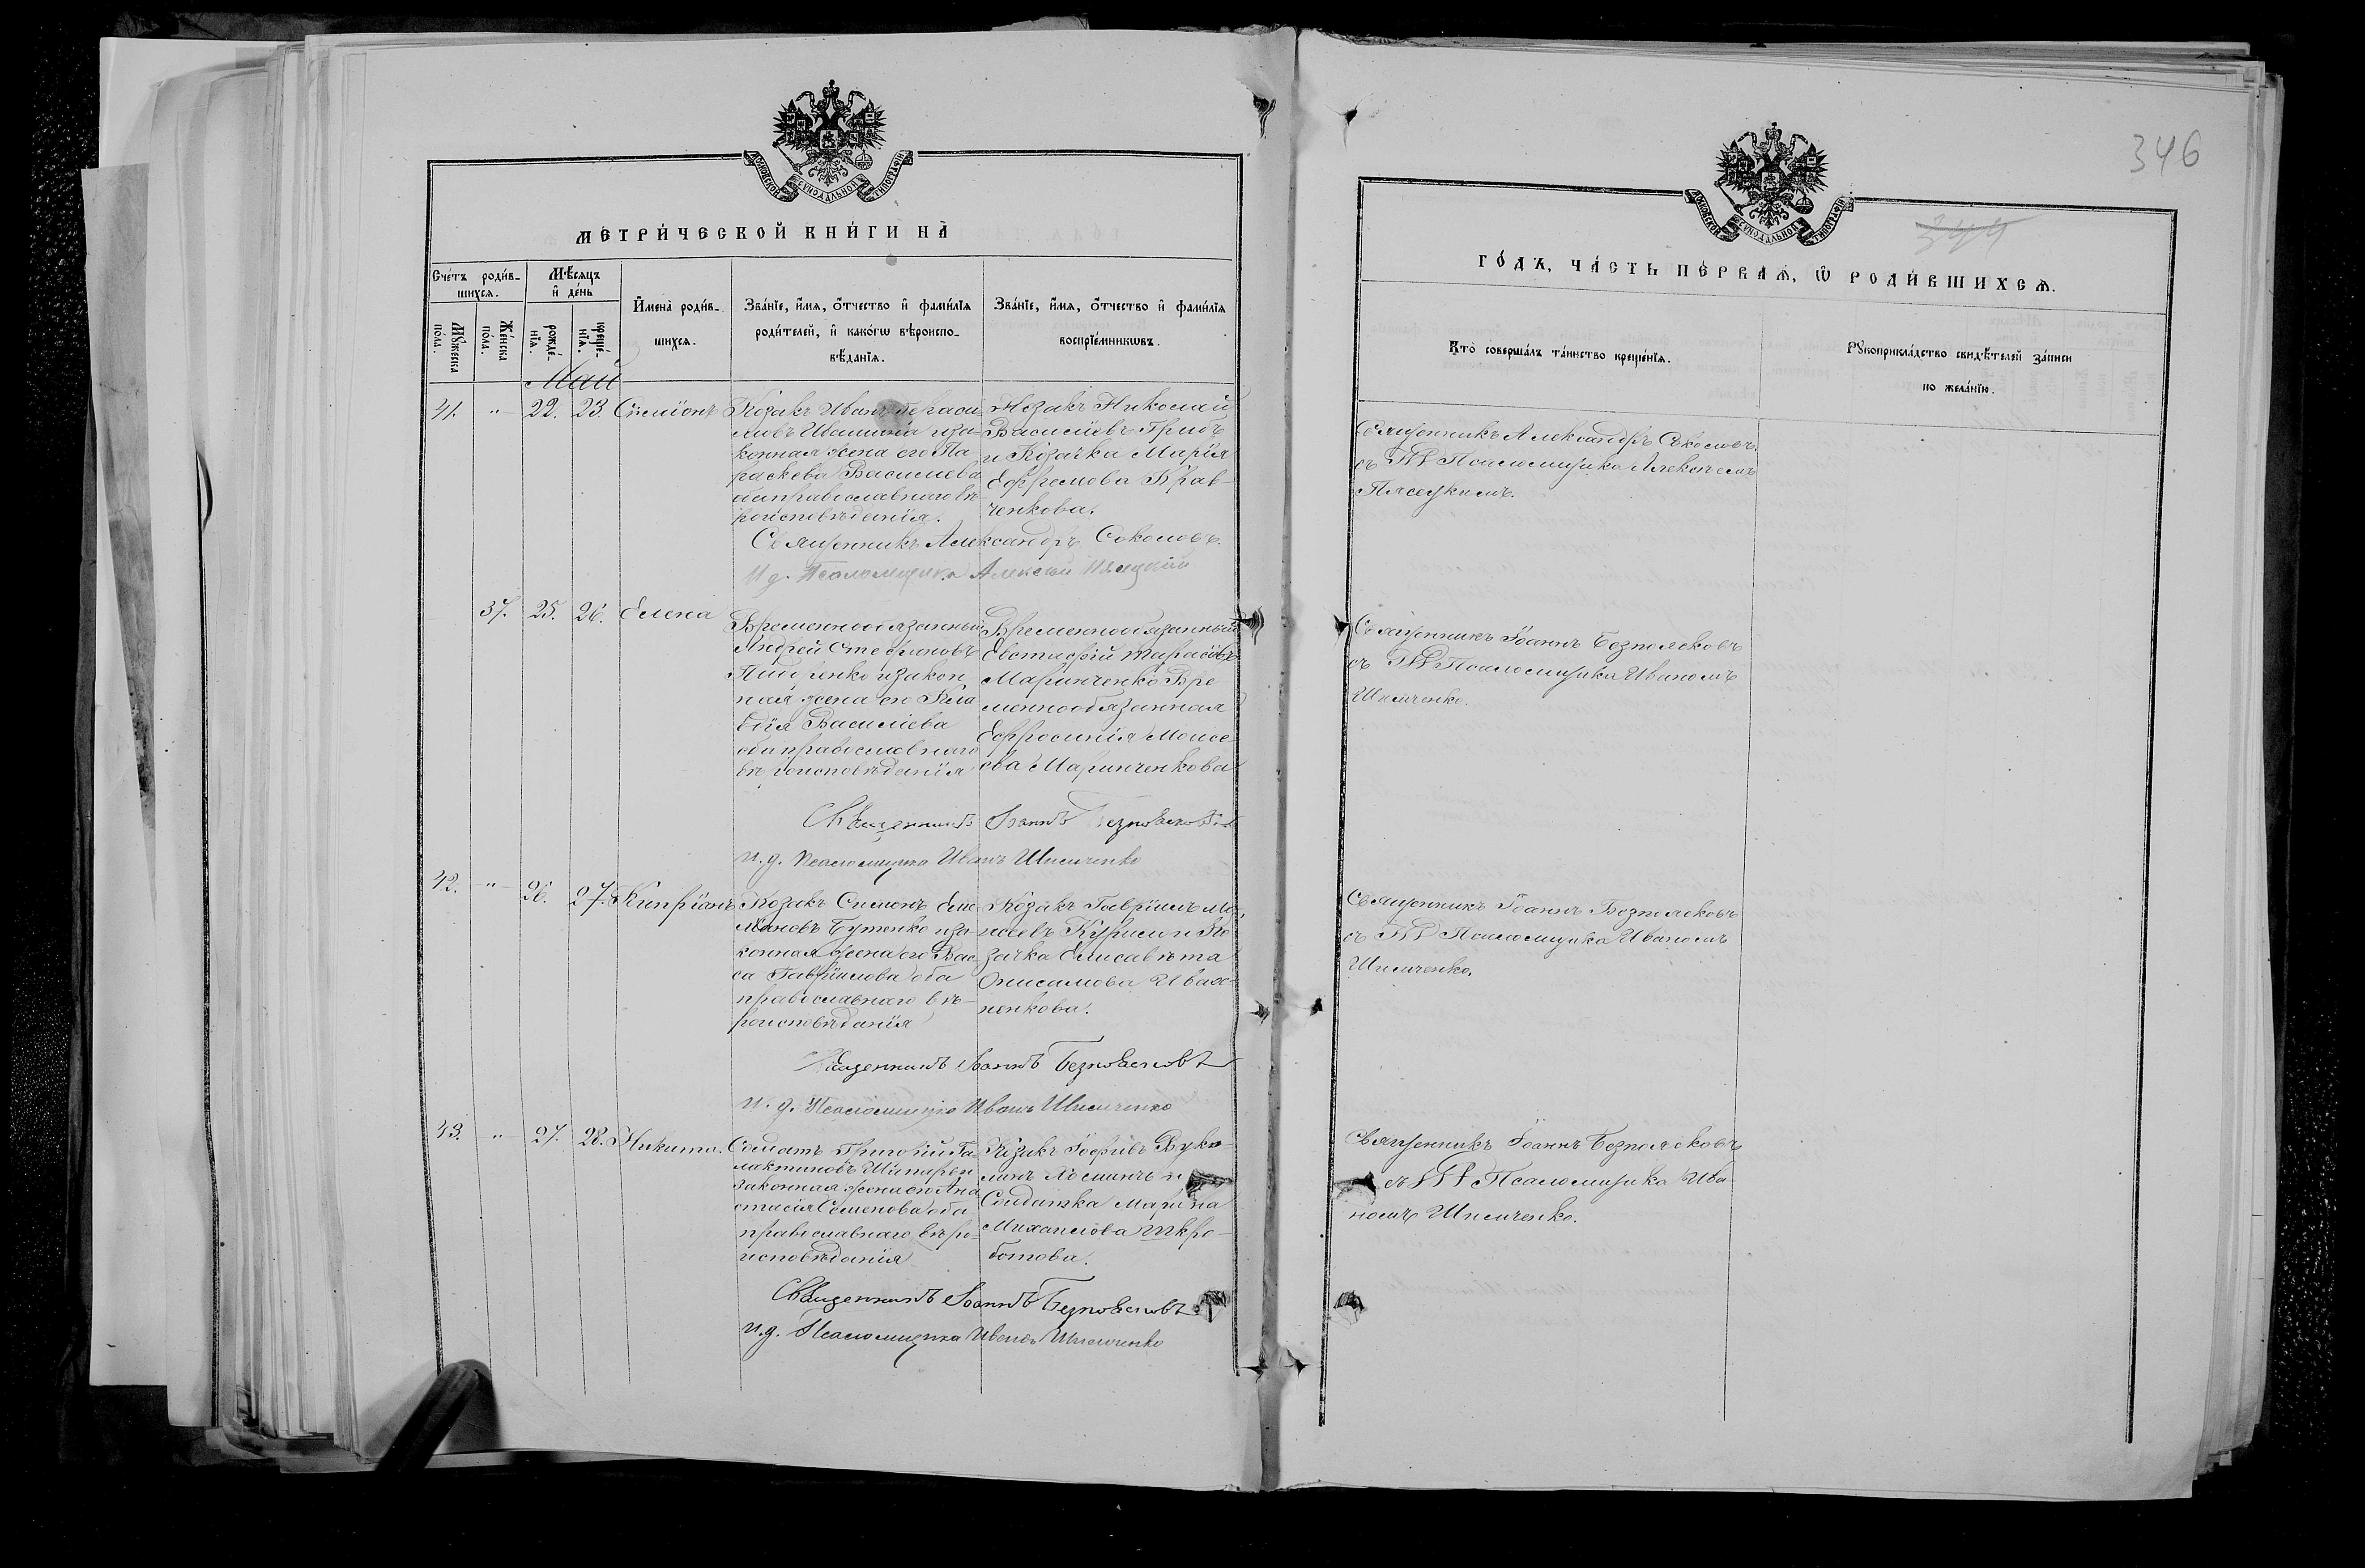 МОСКОВСКОЙ СѴНОДАЛЬНОЙ ТИПОГРАФІИ
МЕТРИ́ЧЕСКОЙ КНИ́ГИ НА̀
Сче́тъ роди́в-
шихсѧ.
Мѣ́сѧцъ
и҆ де́нь
Мꙋ́жеска
по́ла.
Же́нска
по́ла.
рожде́-
нїѧ.
креще́-
нїѧ.
И҆мена̀ роди́в-
шихсѧ.
Зва́нїе, и҆́мѧ, ѻ҆́тчество и҆ фами́лїѧ
роди́телей, и҆ како́гѡ вѣроиспо-
вѣ́данїѧ.
Зва́нїе, и҆́мѧ, ѻ҆́тчество и҆ фами́лїѧ
воспрїе́мникѡвъ.
Май
41. " 22. 23. Симіонъ
Козакъ Иванъ Гераси-
мовъ Ивашина и за-
конная жена его Па
раскева Василиева
оба православнаго вѣ-
роисповѣданія.
Козакъ Николай
Василіевъ Грибъ
и Козачка Марія
Ефремова Крав-
ченкова.
Священникъ Александръ Соколовъ.
И д. Псаломщика Алексѣй Пясецкій
37. 25. 26. Елена
Временнообязанный
Андрей Стефановъ
Пидоренко и закон
ная жена его Кла
вдія Василіева
оба православнаго
вѣроисповѣданія
Временнообязанный
Евстафій Тарасіевъ
Маринченко Вре
меннообязанная
Ефросинія Моисе
ева Маринченкова
Священникъ Іоаннъ Безпоясковъ
и. д. Псаломщика Иванъ Шиленко
42. " 26. 27. Кипріанъ
Козакъ Симонъ Еме
ліановъ Бутенко и за-
конная жена его Вас-
са Гавріилова оба
православнаго вѣ-
роисповѣданія
Козакъ Гавріилъ Мо-
исеевъ Курило и Ко
зачка Елисавета
Онисимова Ивах-
ненкова.
Священникъ Іоаннъ Безпоясковъ
и. д. Псаломщика Иванъ Шиленко
43. " 27. 28. Никита.
Солдатъ Григорій Га-
лактіоновъ
законная жена его Ана
стасія Семенова оба
православнаго вѣро-
исповѣданія
Козакъ Іосифъ Вуко-
ловъ и
Солдатка Марина
Михайлова
ботова.
Священникъ Іоаннъ Безпоясковъ
и. д. Псаломщика Иванъ Шиленко
346
344
МОСКОВСКОЙ СѴНОДАЛЬНОЙ ТИПОГРАФІИ
ГО́ДЪ, ЧА́СТЬ ПЕ́РВАѦ, Ѡ҆ РОДИ́ВШИХСѦ.
Кто̀ соверша́лъ та́инство креще́нїѧ.
Рꙋкоприкла́дство свидѣ́телей за́писи
по жела́нїю.
Священникъ Александръ Соколовъ
съ Псаломщика Алексѣемъ
Пясецкимъ.
Священникъ Іоаннъ Безпоясковъ
съ Псаломщика Иваномъ
Шиленко.
Священникъ Іоаннъ Безпоясковъ
съ Псаломщика Иваномъ
Шиленко.
Священникъ Іоаннъ Безпоясковъ
съ Псаломщика Ива-
номъ Шиленко.